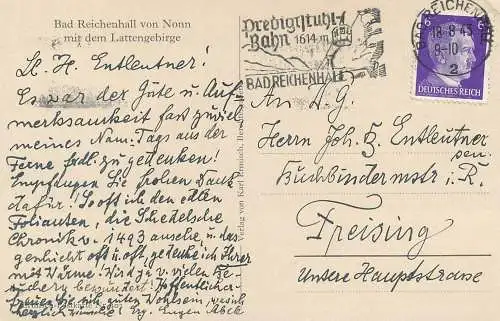 Bad Reichenhall von Nonn
mit dem Lattengebirge
Predigtstuhl-
Bahn 1614 m
BAD REICHENHALL
BAD REICHENHALL
18-8-43
9-10
2
6
DEUTSCHES REICH
Lb. H. Entleutner!
Es war der Güte u. Auf-
merksamkeit fast zuviel
meines Nam. Tags aus der
Ferne frdl. zu gedenken!
Empfangen Sie frohen Dank
dafür! So oft ich den edlen
Folianten, die Schedelsche
Chronik v. 1493 ansehe u. das
geschieht oft u. oft, gedenke ich Ihrer
mit Wärme. Wird ja v. vielen Be-
suchern bewundert! Hoffentlich er-
freuen Sie sich guten Wohlseins
herzlich Eugen Abele
Verlag von Karl Ermisch,
An S. Hg.
Herrn Joh. B. Entleutner
sen.
Buchbindermstr i. R.
Freising
Untere Hauptstrasse